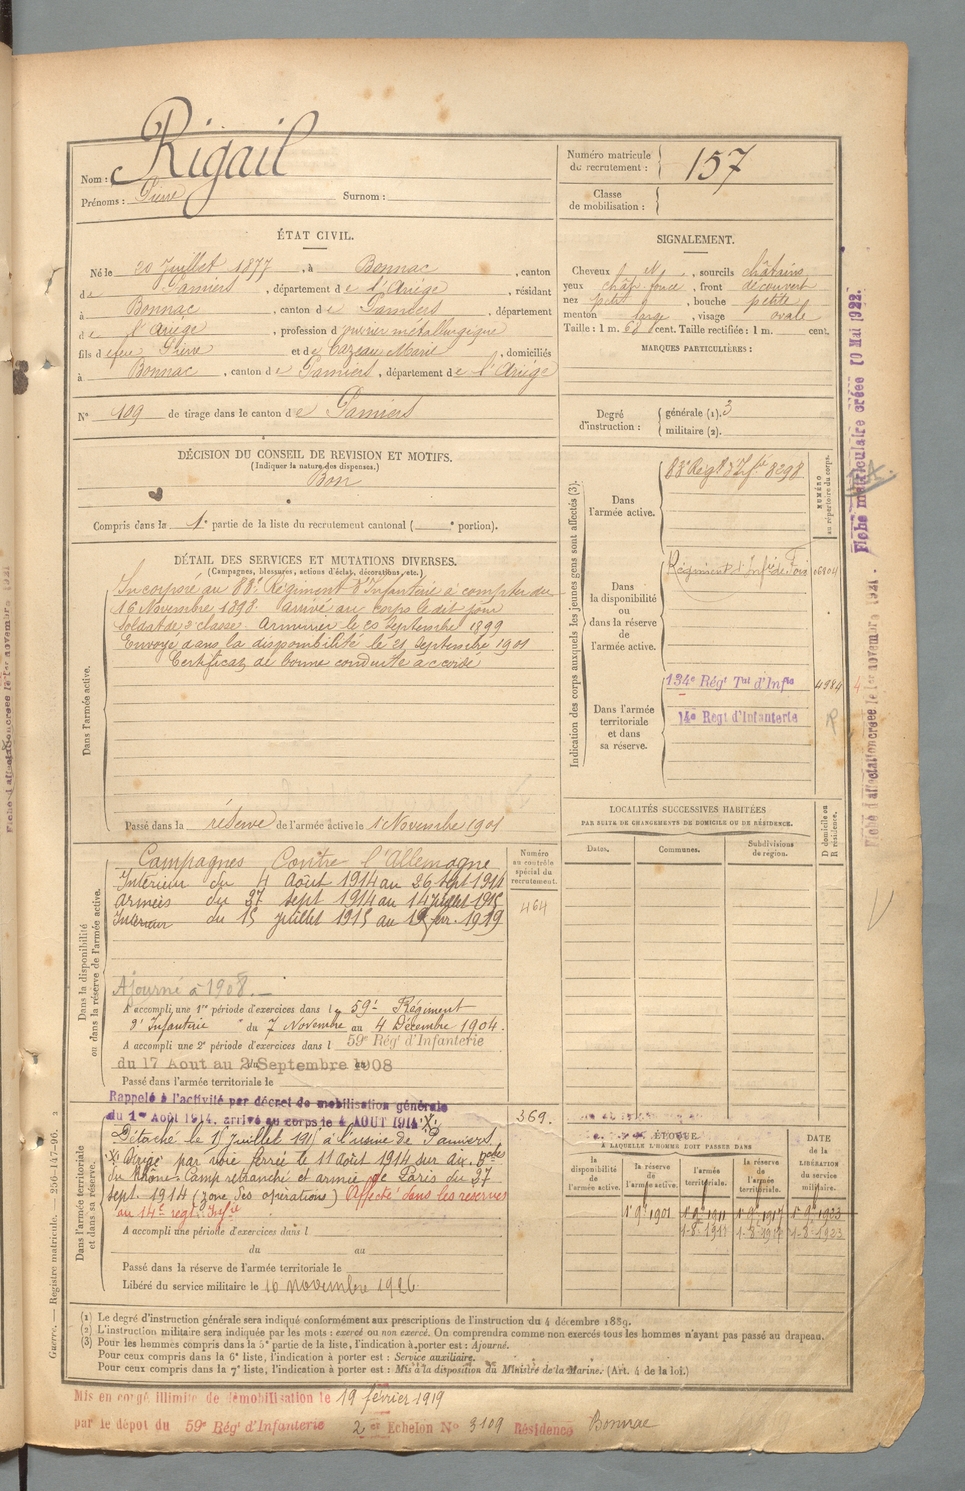 Nom : Rigail
Prénoms : Pierre Surnom :
Numéro matricule
de recrutement : 157
Classe
de mobilisation :
ÉTAT CIVIL.
Né le 20 Juillet 1877, à Bonnac, canton
de Pamiers, département de l'Ariège, résidant
à Bonnac, canton de Pamiers, département
de l'Ariège, profession d'ouvrier métallurgique
fils de feu Pierre et de Cazeau Marie, domiciliés
à Bonnac, canton de Pamiers, département de l'Ariège
N° 109 de tirage dans le canton de Pamiers
SIGNALEMENT.
Cheveux , sourcils châtains
yeux chât. foncé, front découvert
nez petit, bouche petite
menton large, visage ovale
Taille : 1 m. cent. Taille rectifiée : 1 m. cent.
MARQUES PARTICULIÈRES :
Degré
d'instruction :
générale (1). 3
militaire (2).
DÉCISION DU CONSEIL DE REVISION ET MOTIFS.
(Indiquer la nature des dispenses.)
Bon
Compris dans la 1e partie de la liste du recrutement cantonal ( e portion).
DÉTAIL DES SERVICES ET MUTATIONS DIVERSES.
(Campagnes, blessures, actions d'éclat, décorations, etc.)
Dans l'armée active.
Incorporé au 88e Régiment d'Infanterie à compter du
16 Novembre 1898. Arrivé au corps le dit jour
Soldat de 2e classe. Armurier le 20 Septembre 1899
Envoyé dans la disponibilité le 21 Septembre 1901
Certificat de bonne conduite accordé
Passé dans la réserve de l'armée active le 1 Novembre 1901
Indication des corps auxquels les jeunes gens sont affectés (3).
NUMÉRO
au répertoire du corps.
Dans
l'armée active.
88e Régt d'Infie 8298
Dans
la disponibilité
ou
dans la réserve
de
l'armée active.
Régiment d'Infie de Foix
Dans l'armée
territoriale
et dans
sa réserve.
134e Régt Tal d'Infie 4984
14e Regt d'Infanterie
LOCALITÉS SUCCESSIVES HABITÉES
PAR SUITE DE CHANGEMENTS DE DOMICILE OU DE RÉSIDENCE.
Dates.
Communes.
Subdivisions
de région.
D domicile ou
R résidence.
Dans la disponibilité
ou dans la réserve de l'armée active.
Campagnes Contre l'Allemagne
Intérieur du 4 Août 1914 au 26 sept 1914
Armées du 27 sept 1914 au 14 juillet 1915
Intérieur du 15 juillet 1915 au 19 fév. 1919
Numéro
au contrôle
spécial du
recrutement.
464
Ajourné à 1908.
A accompli une 1re période d'exercices dans le 59e Régiment
d'Infanterie du 7 Novembre au 4 Décembre 1904.
A accompli une 2e période d'exercices dans l 59e Régt d'Infanterie
du 17 Aout au Septembre 1908
Passé dans l'armée territoriale le
Rappelé à l'activité par décret de mobilisation générale
du 1er Août 1914, arrivé au corps le 4 AOUT 1914
369.
Dans l'armée territoriale
et dans sa réserve.
Détaché le 15 Juillet 1915 à l'usine de Pamiers
Dirigé par voie ferrée le 11 août 1914 sur Aix. Bches
du Rhône. Camp retranché et armée de Paris du 27
sept. 1914 (zone des opérations) Affecté dans les réserves
au 14e regt Infie
A accompli une période d'exercices dans l
du au
Passé dans la réserve de l'armée territoriale le
Libéré du service militaire le 10 novembre 1926
ÉPOQUE
À LAQUELLE L'HOMME DOIT PASSER DANS
la
disponibilité
de
l'armée active.
la réserve
de
l'armée active.
l'armée
territoriale.
la réserve
de
l'armée
territoriale.
DATE
de la
LIBÉRATION
du
service
militaire.
1 9bre 1901 1 9bre 1911 1 9bre 1917 1 9bre 1923
(1) Le degré d'instruction générale sera indiqué conformément aux prescriptions de l'instruction du 4 décembre 1889.
(2) L'instruction militaire sera indiquée par les mots : exercé ou non exercé. On comprendra comme non exercés tous les hommes n'ayant pas passé au drapeau.
(3) Pour les hommes compris dans la 5e partie de la liste, l'indication à porter est : Ajourné.
Pour ceux compris dans la 6e liste, l'indication à porter est : Service auxiliaire.
Pour ceux compris dans la 7e liste, l'indication à porter est : Mis à la disposition du Ministre de la Marine. (Art. 4 de la loi.)
Mis en congé illimité de démobilisation le 19 février 1919
par le dépôt du 59e Régt d'Infanterie 2 Echelon N° 3109 Résidence Bonnac
Guerre. — Registre matricule. — 256-147-96.
Fiche matriculaire créée 10 Mai 1922.
Fiche d'affectation créée le 1er novembre 1921.